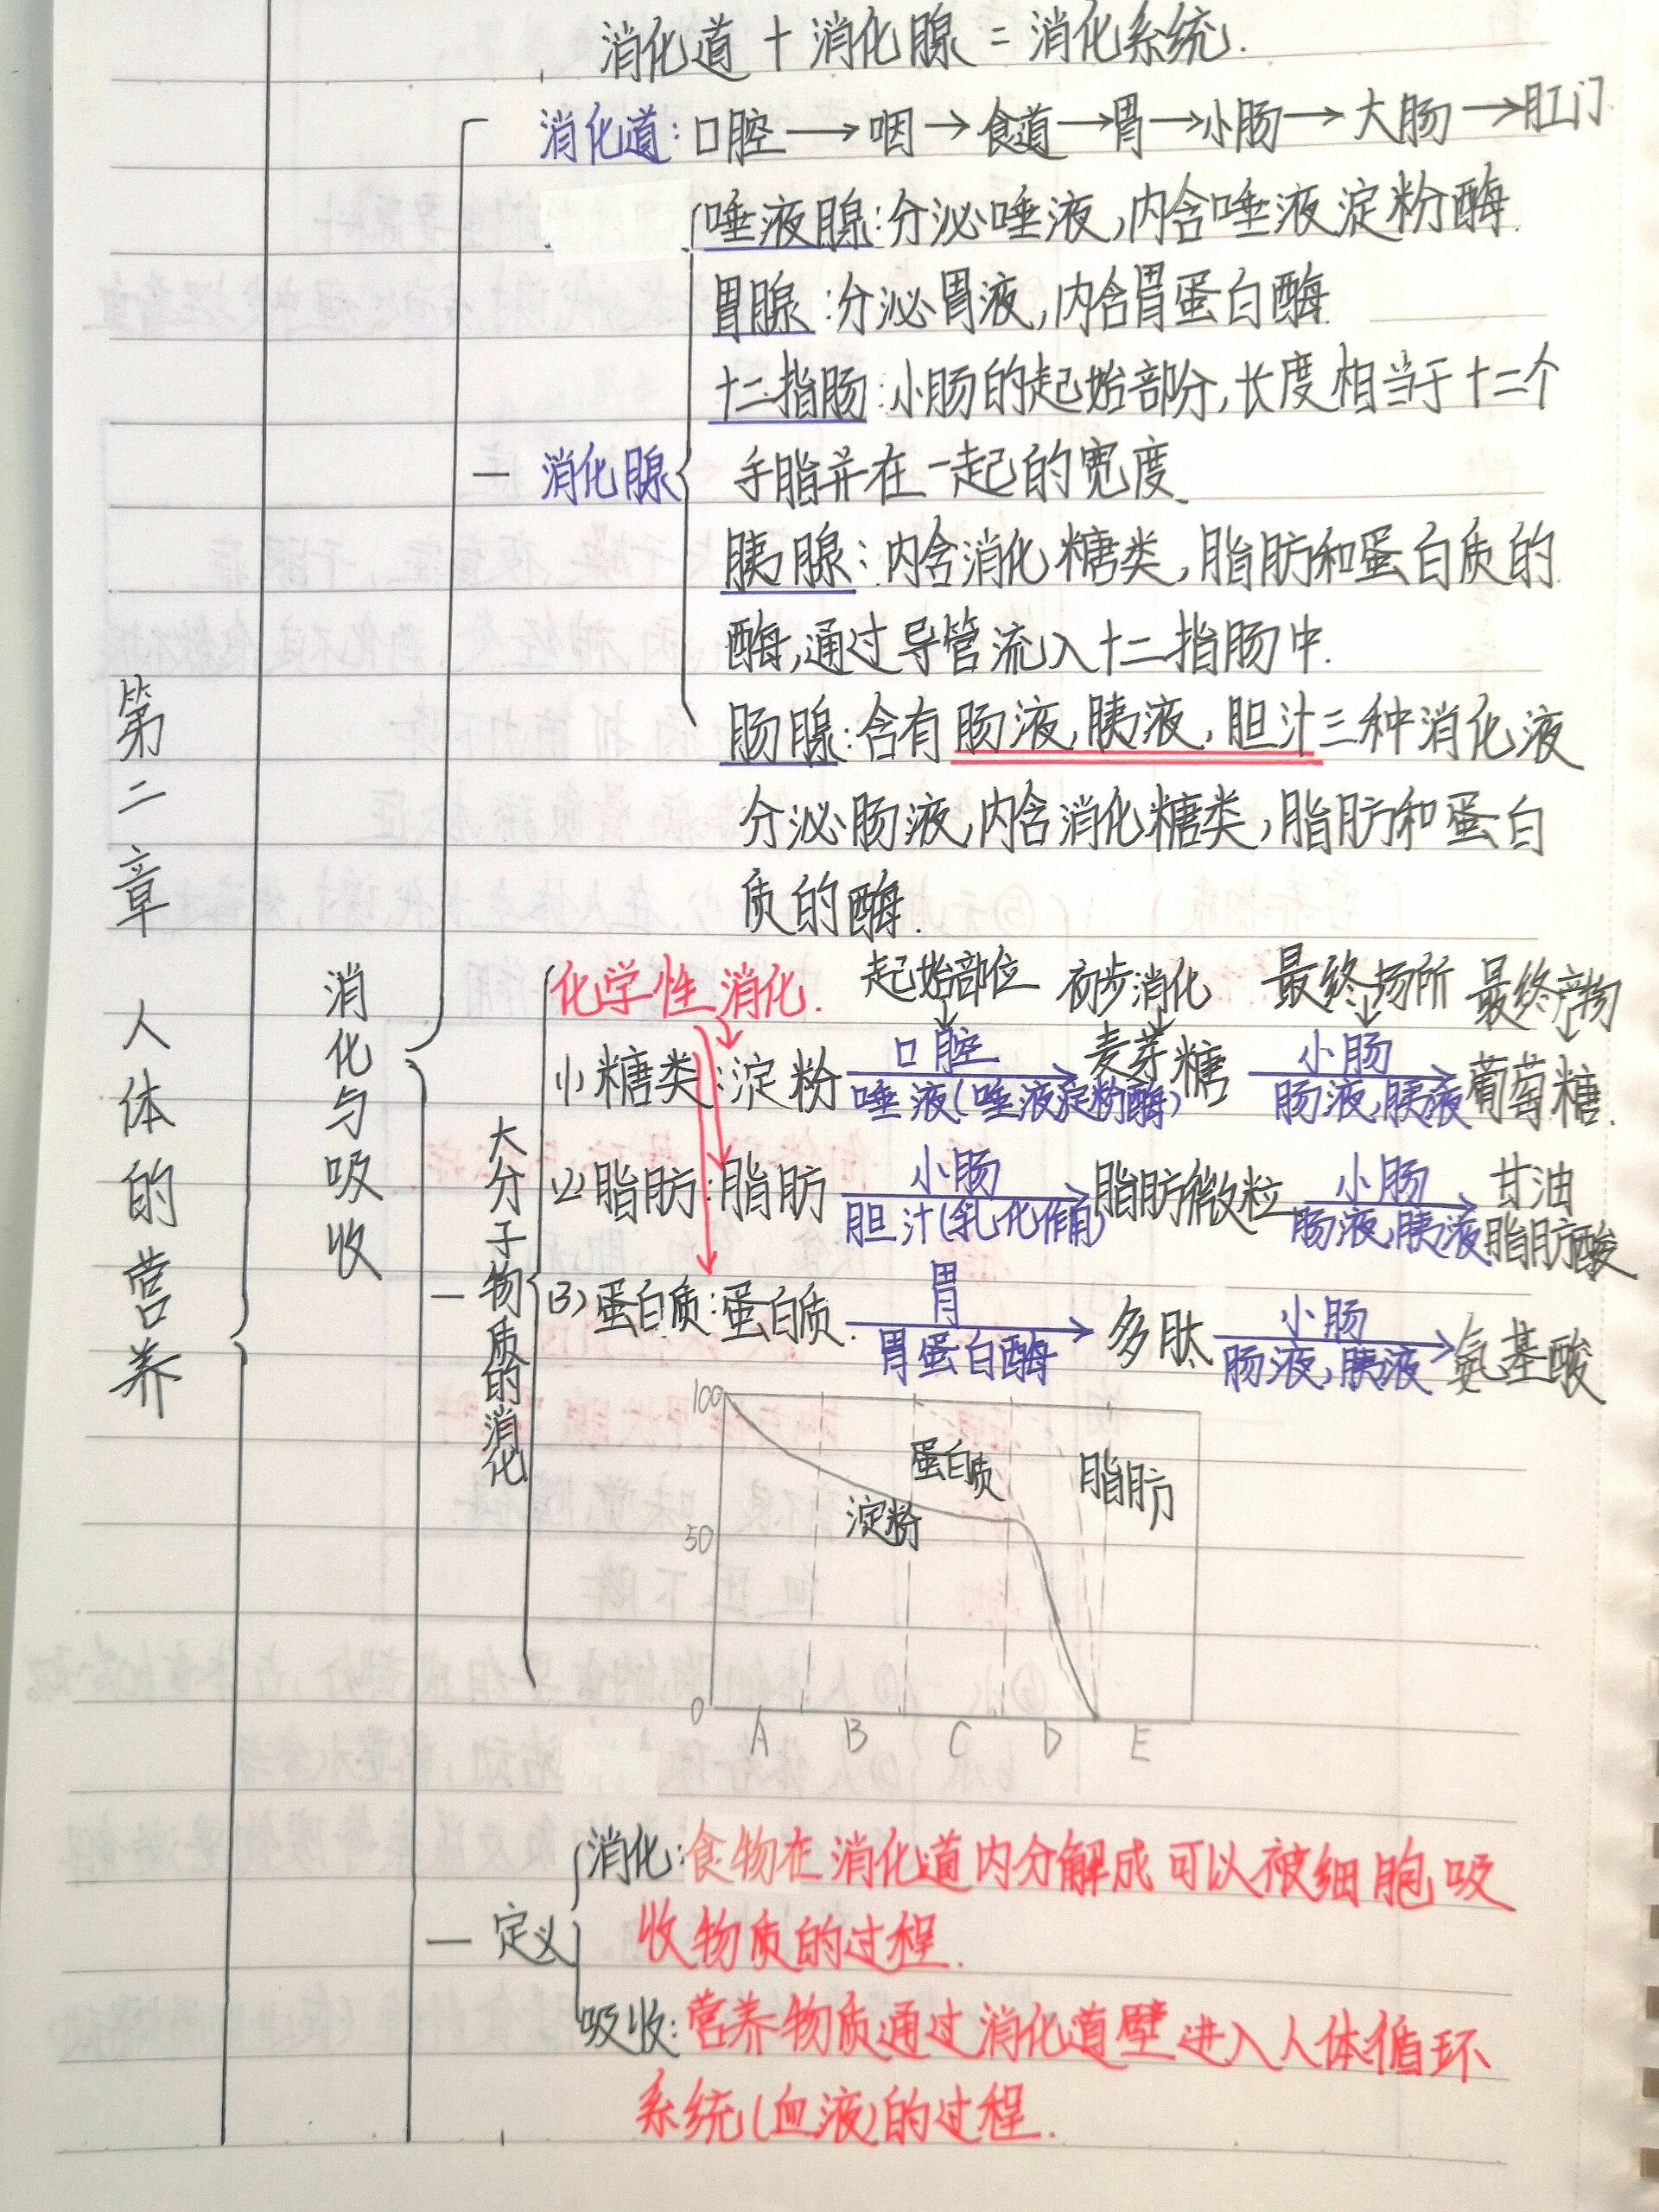 消化道+消化腺=消化系统.
消化道:口腔→咽→食道→胃→小肠→大肠→肛门
唾液腺:分泌唾液,内含唾液淀粉酶.
胃腺:分泌胃液,内含胃蛋白酶.
十二指肠:小肠的起始部分,长度相当于十二个
一 消化腺
手脂并在一起的宽度.
胰腺:内含消化糖类,脂肪和蛋白质的
酶,通过导管流入十二指肠中.
肠腺:含有肠液,胰液,胆汁三种消化液
分泌肠液,内含消化糖类,脂肪和蛋白
质的酶.
第二章 人体的营养
消化与吸收
大分子物质的消化
化学性消化. 起始部位 初步消化 最终场所 最终产物
(1)糖类:淀粉 口腔 唾液(唾液淀粉酶) 麦芽糖 小肠 肠液,胰液 葡萄糖.
(2)脂肪:脂肪 小肠 胆汁(乳化作用) 脂肪微粒 小肠 肠液,胰液 甘油 脂肪酸
(3)蛋白质:蛋白质. 胃 胃蛋白酶 多肽 小肠 肠液,胰液 氨基酸
100
蛋白质 脂肪
淀粉
50
0
A B C D E
消化:食物在消化道内分解成可以被细胞吸
收物质的过程.
一 定义
吸收:营养物质通过消化道壁进入人体循环
系统(血液)的过程.